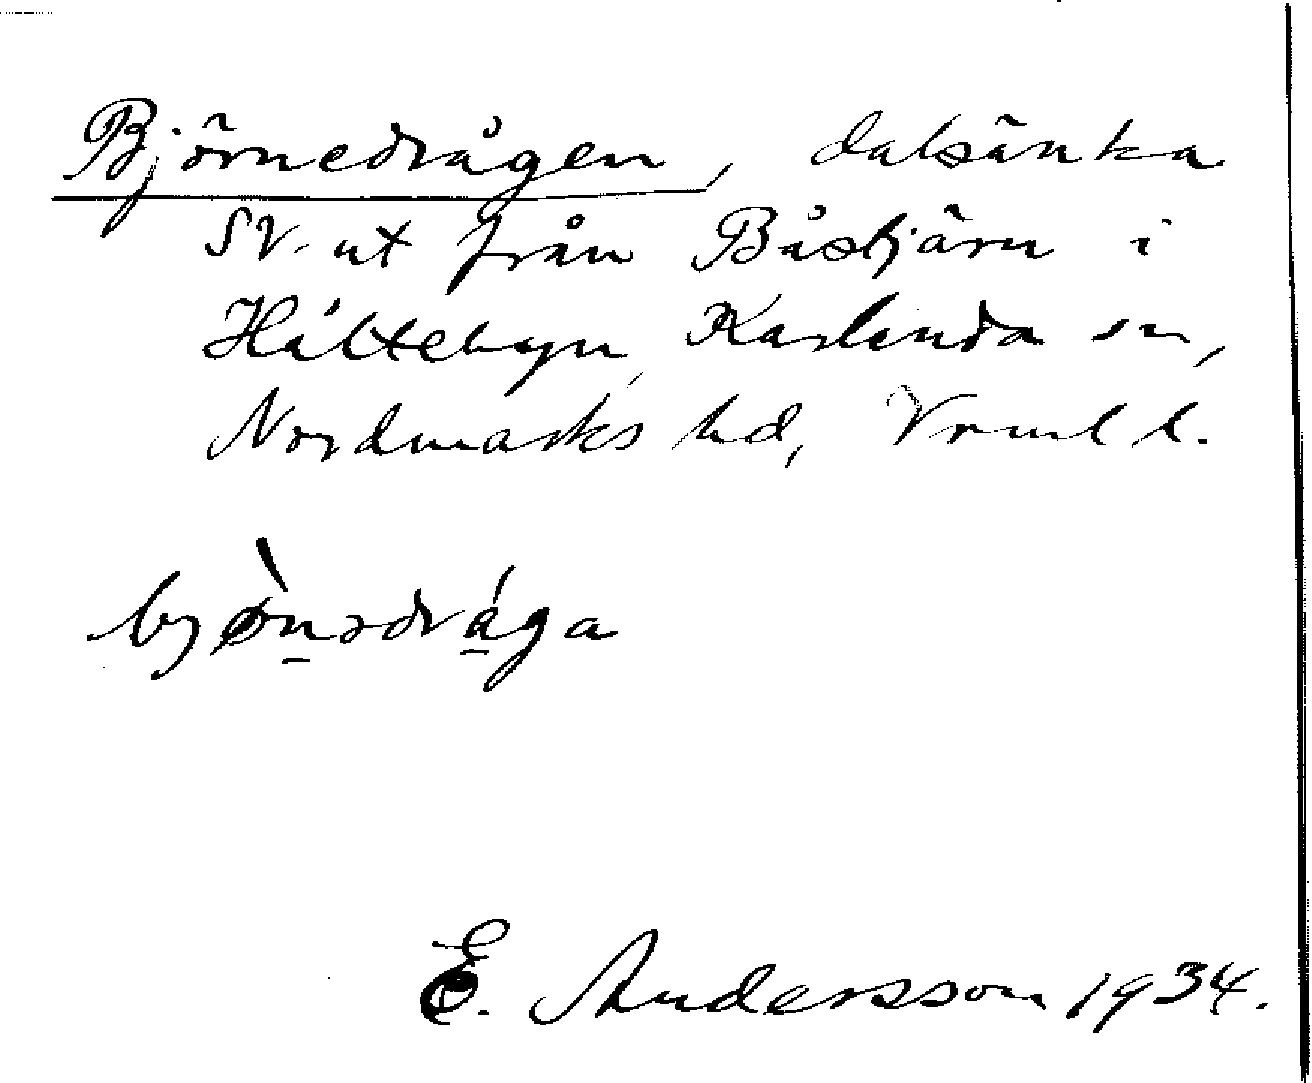 Björnedrågen, dalsänka
SV. ut från Båstjärn i
Hältebyn, Karlanda sn,
Nordmarks hd, Vrml l.
E. Andersson 1934.